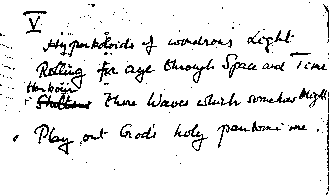 V
Hyperboloids of wondrous Light
Rolling for aye through Space and Time
Harbour
there Waves which somehow Might
Play out Gods holy pantomime.